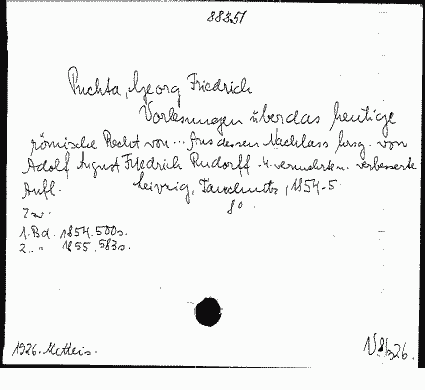 88351
Puchta, Georg Friedrich
Vorlesungen über das heutige
römische Recht von ... Aus dessen Nachlass hrsg. von
Adolf August Friedrich Rudorff. 4. vermehrte u. verbesserte
Aufl. Leipzig, Tauchnitz, 1854-5
2 v.
8°.
1. Bd. 1854. 500s.
2. " 1855. 583s.
1926. Matteis.